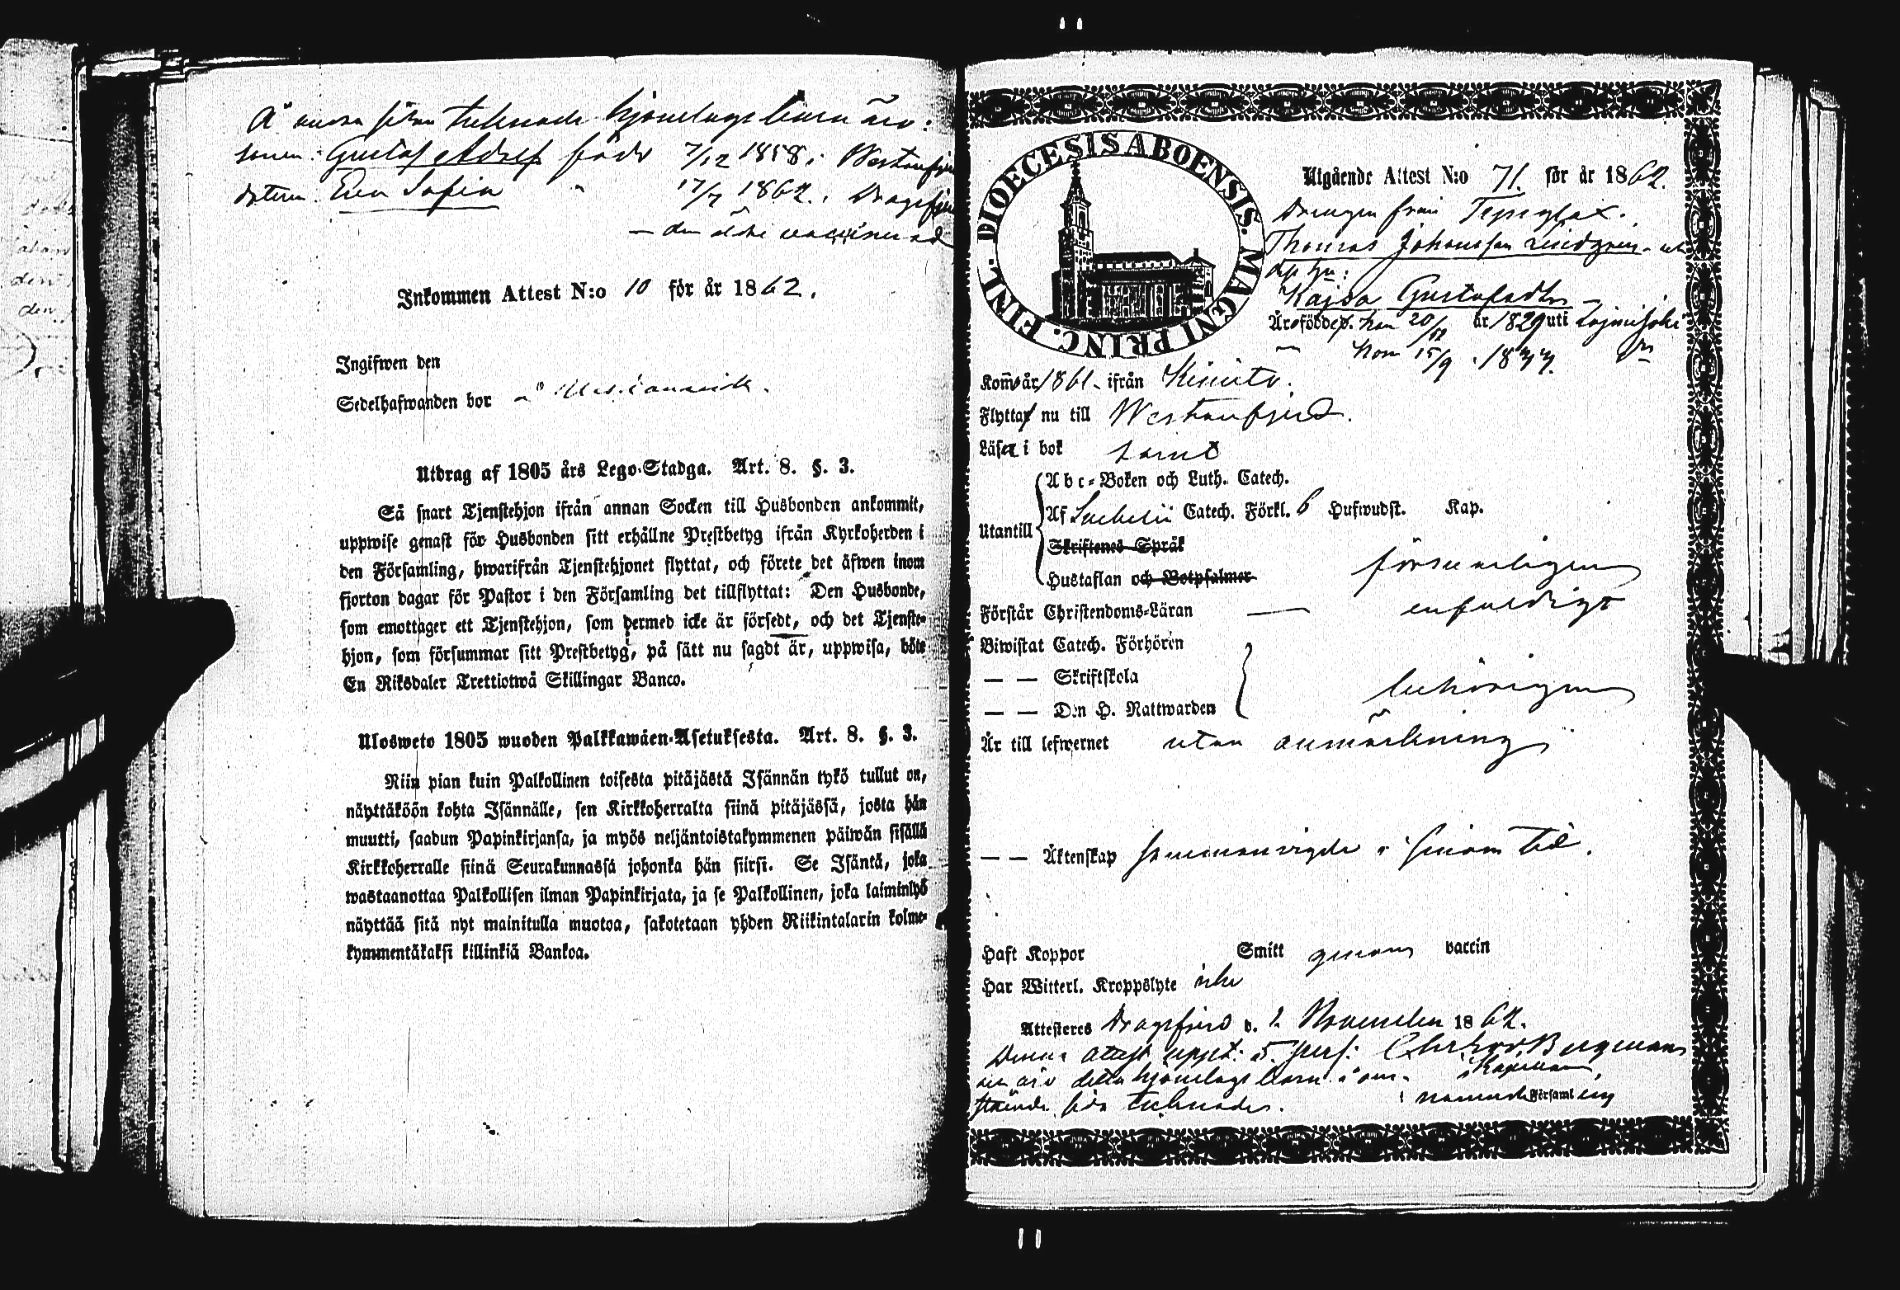 Å andra sidan tecknade hjonelags barn äro:
sonen: Gustaf Adolf född 7/12 1858 i Westanfjerd
dottren Eva Sofia " 17/7 1862 i Dragsfjerd
— den äldre vaccinerad
Inkommen Attest N:o 10 för år 1862.
Ingifwen den
Sedelhafwanden bor å
Utdrag af 1805 års Lego-Stadga. Art. 8. §. 3.
Så snart Tjenstehjon ifrån annan Socken till Husbonden ankommit,
uppwise genast för Husbonden sitt erhållne Prestbetyg ifrån Kyrkoherden i
den Församling, hwarifrån Tjenstehjonet flyttat, och förete det äfwen inom
fjorton dagar för Pastor i den Församling det tillflyttat: Den Husbonde,
som emottager ett Tjenstehjon, som dermed icke är försedt, och det Tjenste-
hjon, som försummar sitt Prestbetyg, på sätt nu sagdt är, uppwisa, böte
En Riksdaler Trettiotwå Skillingar Banco.
Ulosweto 1805 wuoden Palkkawäen-Asetuksesta. Art. 8. §. 3.
Niin pian kuin Palkollinen toisesta pitäjästä Isännän tykö tullut on,
näyttäköön kohta Isännälle, sen Kirkkoherralta siinä pitäjässä, josta hän
muutti, saadun Papinkirjansa, ja myös neljäntoistakymmenen päiwän sisällä
Kirkkoherralle siinä Seurakunnassa johonka hän siirsi. Se Isäntä, joka
wastaanottaa Palkollisen ilman Papinkirjata, ja se Palkollinen, joka laiminlyö
näyttää sitä nyt mainitulla muotoa, sakotetaan yhden Riikintalarin kolme-
kymmentäkaksi killinkiä Bankoa.
FINL. DIOECESIS ABOENSIS. MAGNI PRINC.
Utgående Attest N:o 71. för år 1862.
Drengen från
Thomas Johansson Lindgren
Kajsa Gustafsdtr
Äro födde han 20/12 år 1829 uti
hon 15/9 1833.
Kommo år 1861 ifrån Kimito.
Flyttar nu till Westanfjerd.
Läser i bok
Utantill
Abc-Boken och Luth. Catech.
Af Svebelii Catech. Förkl. 6 Hufwudst. Kap.
Skriftenes Språk
Hustaflan och Botpsalmer försvarligen
Förstår Christendoms-Läran — enfaldigt
Biwistat Catech. Förhören
— — Skriftskola
— — Den H. Nattwarden behörigen
Är till lefwernet utan anmärkning
— — Äktenskap sammanvigde i sinom tid.
Haft Koppor Smitt genom vaccin
Har Witterl. Kroppslyte icke
Attesteres Dragsfjerd d. 2 November 1862.
Denna attest uppt: 5 pers: Bergman
äro detta hjonelags barn å om- Kapellan
stående sida tecknade. i nämnde Församling